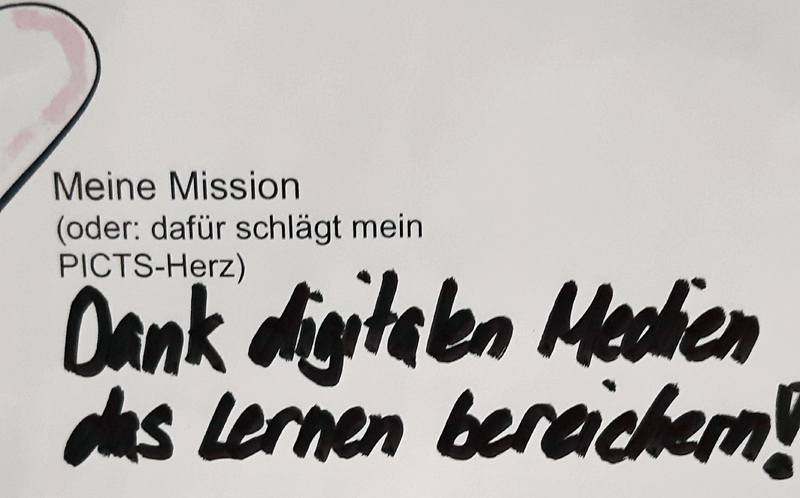 Meine Mission
(oder: dafür schlägt mein
PICTS-Herz)
Dank digitalen Medien
das Lernen bereichern!